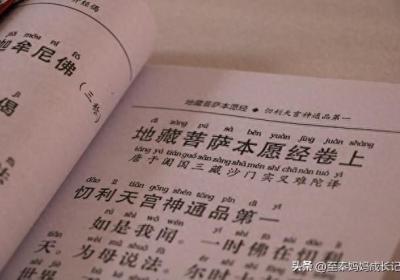 móu ní fó
牟尼佛(三称)
偈
地藏菩萨本愿经 ◆ 忉利天宫神通品第一
dì zàng pú sà běn yuàn jīng juàn shàng
地藏菩萨本愿经卷上
táng yú tián guó sān zàng shā mén shí chā nán tuó yì
唐于阗国三藏沙门实叉难陀译
dāo lì tiān gōng shén tōng pǐn dì yī
忉利天宫神通品第一
如是我闻。一时佛在忉
天，为母说法。尔时
世界
头条 @至秦妈妈成长记